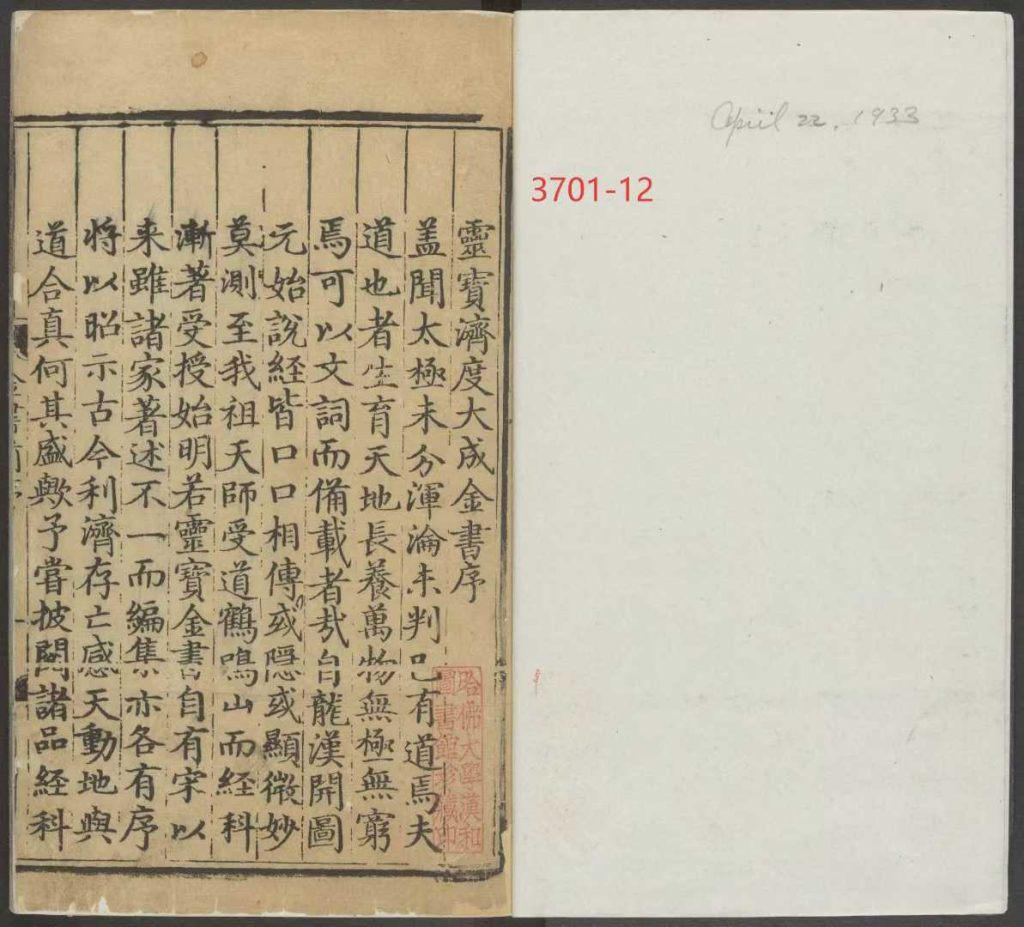 靈寶濟度大成金書序
盖聞太極未分渾淪未判已有道焉夫
道也者生育天地長養萬物無極無窮
焉可以文詞而備載者哉自龍漢開圖
元始說經皆口口相傳或隱或顯微妙
莫測至我祖天師受道鶴鳴山而經科
漸著受授始明若靈寶金書自有宋以
来雖諸家著述不一而編集亦各有序
将以昭示古今利濟存亡感天動地與
道合真何其盛歟予嘗披閱諸品経科
金書前序
一
哈佛大學漢和
圖書館珍藏印
April 22, 1933
3701-12